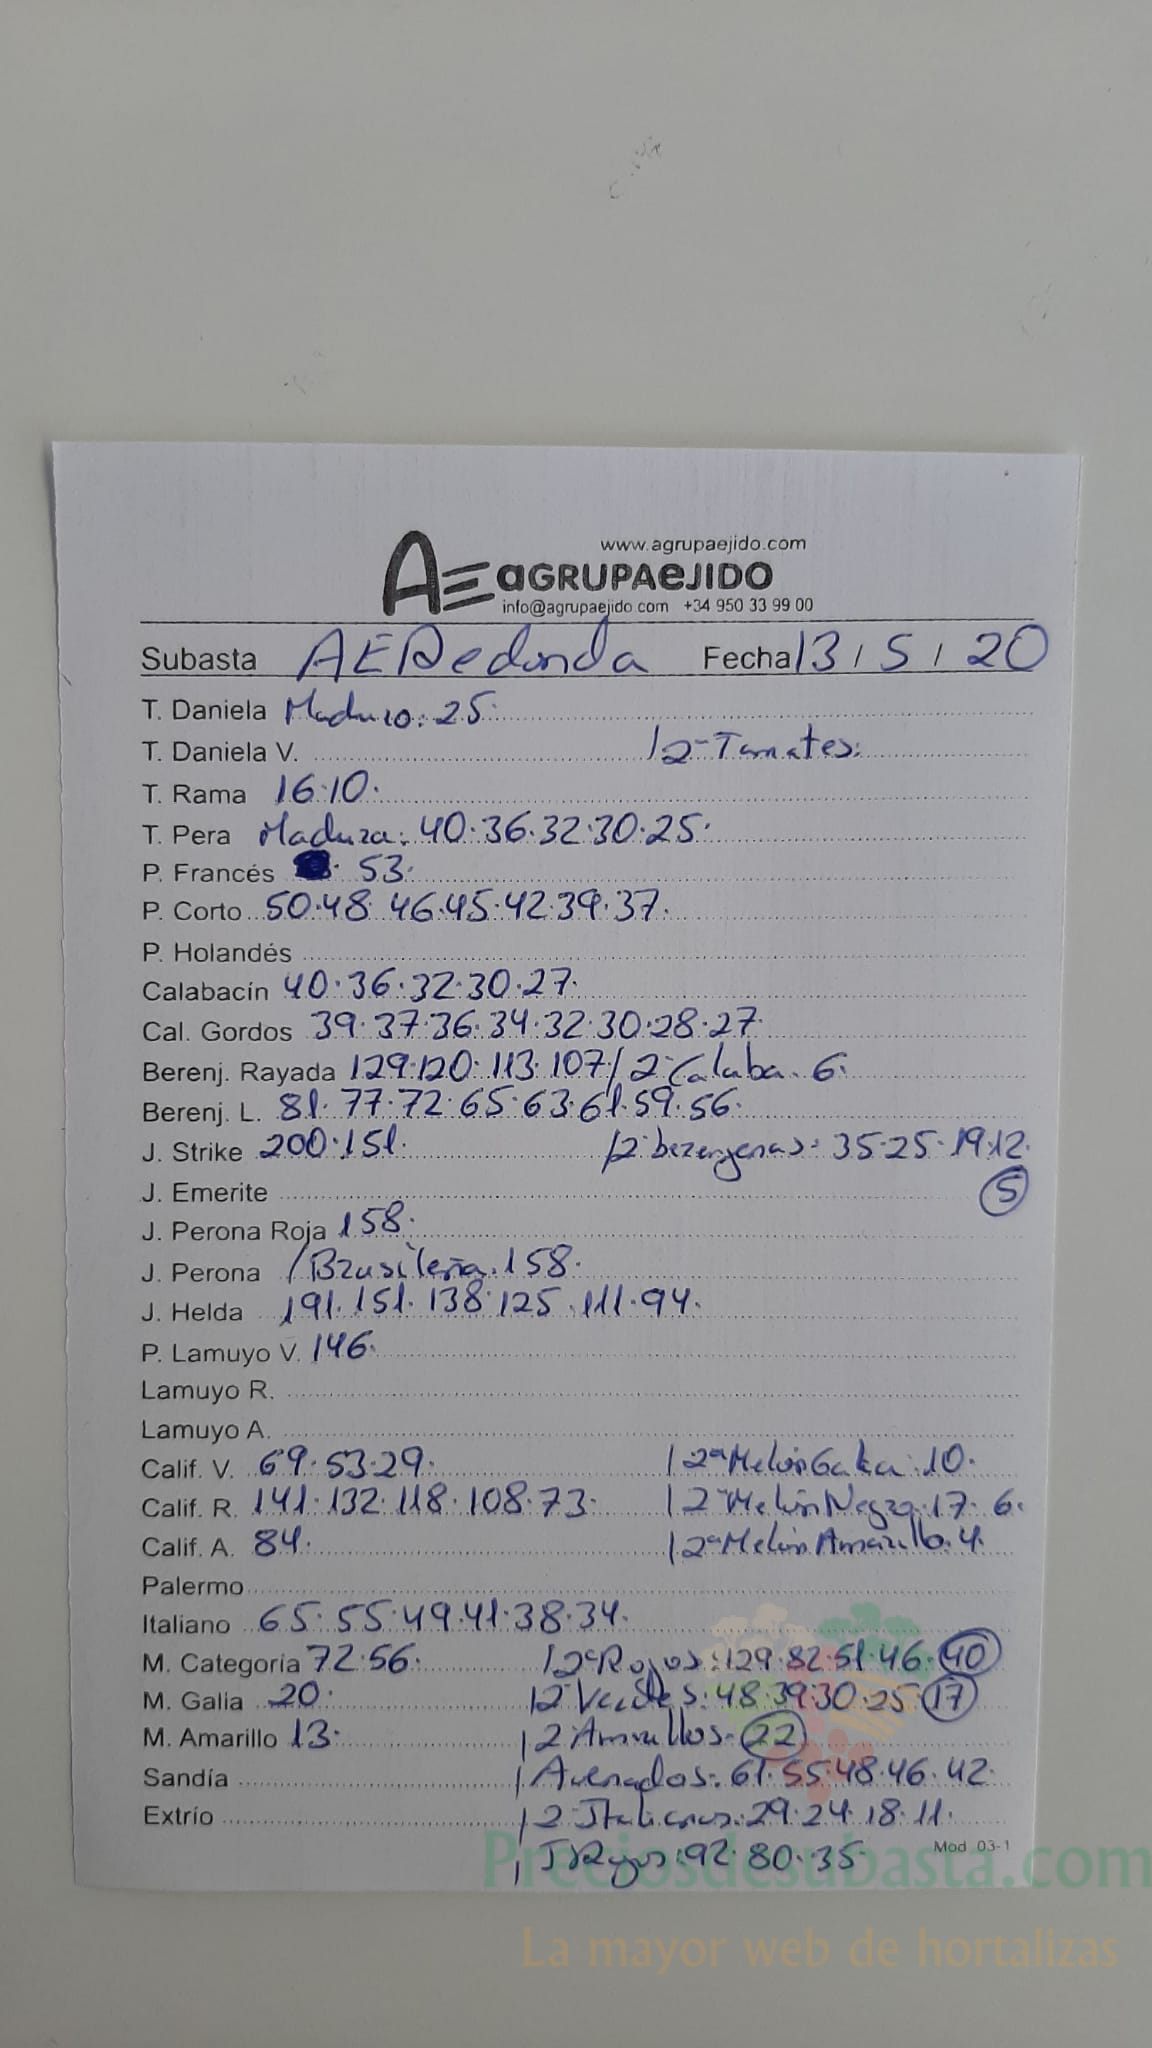 www.agrupaejido.com
AE aGRUPAeJIDO
info@agrupaejido.com +34 950 33 99 00
Subasta AERedonda Fecha 13 / 5 / 20
T. Daniela Maduro: 25.
T. Daniela V. / 2ª Tomates:
T. Rama 16.10.
T. Pera Madura: 40.36.32.30.25.
P. Francés 53.
P. Corto 50.48.46.45.42.39.37.
P. Holandés
Calabacín 40.36.32.30.27.
Cal. Gordos 39.37.36.34.32.30.28.27.
Berenj. Rayada 129.120.113.107 / 2ª Calaba. 6.
Berenj. L. 81.77.72.65.63.61.59.56.
J. Strike 200.151. / 2ª berengenas: 35.25.19.12.
J. Emerite 5
J. Perona Roja 158.
J. Perona / Brasileña. 158.
J. Helda 191.151.138.125.111.94.
P. Lamuyo V. 146.
Lamuyo R.
Lamuyo A.
Calif. V. 69.53.29. / 2ª Melón Galia. 10.
Calif. R. 141.132.118.108.73. / 2ª Melón Negro. 17. 6.
Calif. A. 84. / 2ª Melón Amarillo. 4.
Palermo
Italiano 65.55.49.41.38.34.
M. Categoría 72.56. / 2ª Rojos: 129.82.51.46.40
M. Galia 20. / 2ª Verdes: 48.39.30.25.17
M. Amarillo 13. / 2 Amarillos. 22
Sandía / Asenados: 61.55.48.46.42.
Extrío / 2ª Italianos: 29.24.18.11.
/ I Rojos: 92.80.35. Mod. 03-1
Preciosdesubasta.com
La mayor web de hortalizas